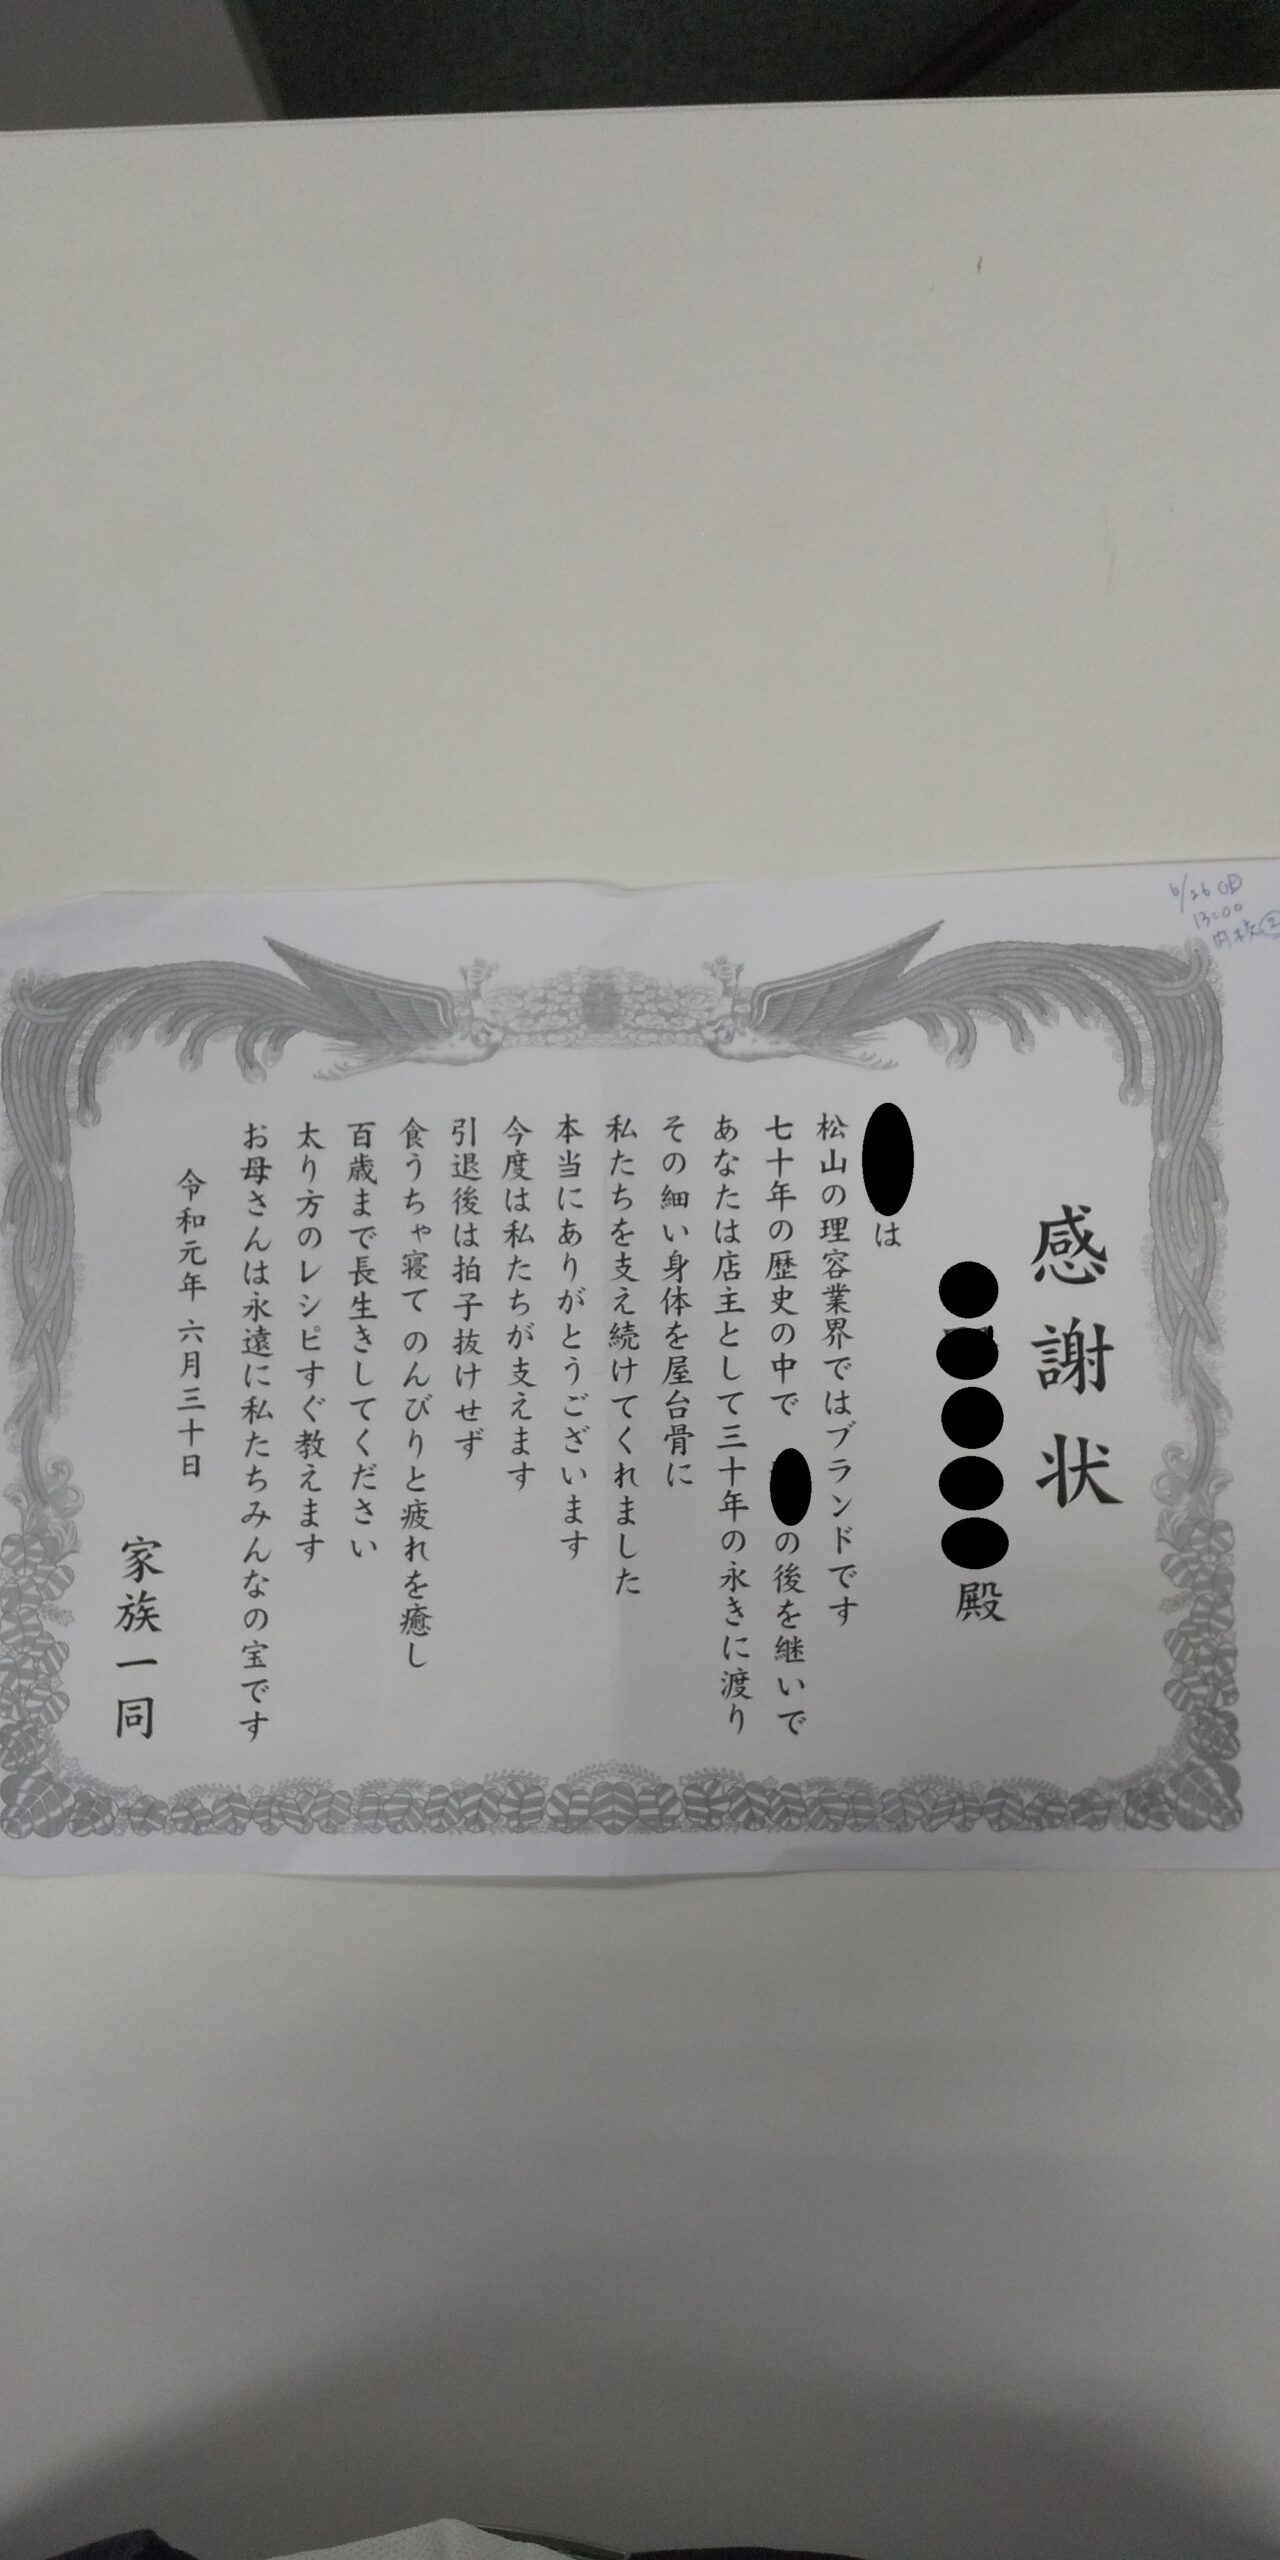 感謝状
殿
は
松山の理容業界ではブランドです
七十年の歴史の中で の後を継いで
あなたは店主として三十年の永きに渡り
その細い身体を屋台骨に
私たちを支え続けてくれました
本当にありがとうございます
今度は私たちが支えます
引退後は拍子抜けせず
食うちゃ寝て のんびりと疲れを癒し
百歳まで長生きしてください
太り方のレシピすぐ教えます
お母さんは永遠に私たちみんなの宝です
令和元年 六月三十日
家族一同
6/26
13:00